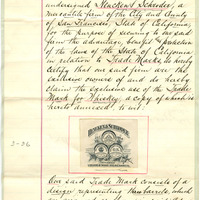 undersigned Neuchens Schroder, a
mercantile firm of the City and County
of San Francisco, State of California
for the purpose of securing to our said
firm the advantage, benefit & protection
of the laws of the State of California
in relation to Trade Marks, do hereby
certify that our said firm are the
exclusive owners of and do hereby
claim the exclusive use of the Trade
Mark for Whiskey, a copy of which is
hereto annexed, to wit:
Our said Trade Mark consists of a
design representing three barrels, which